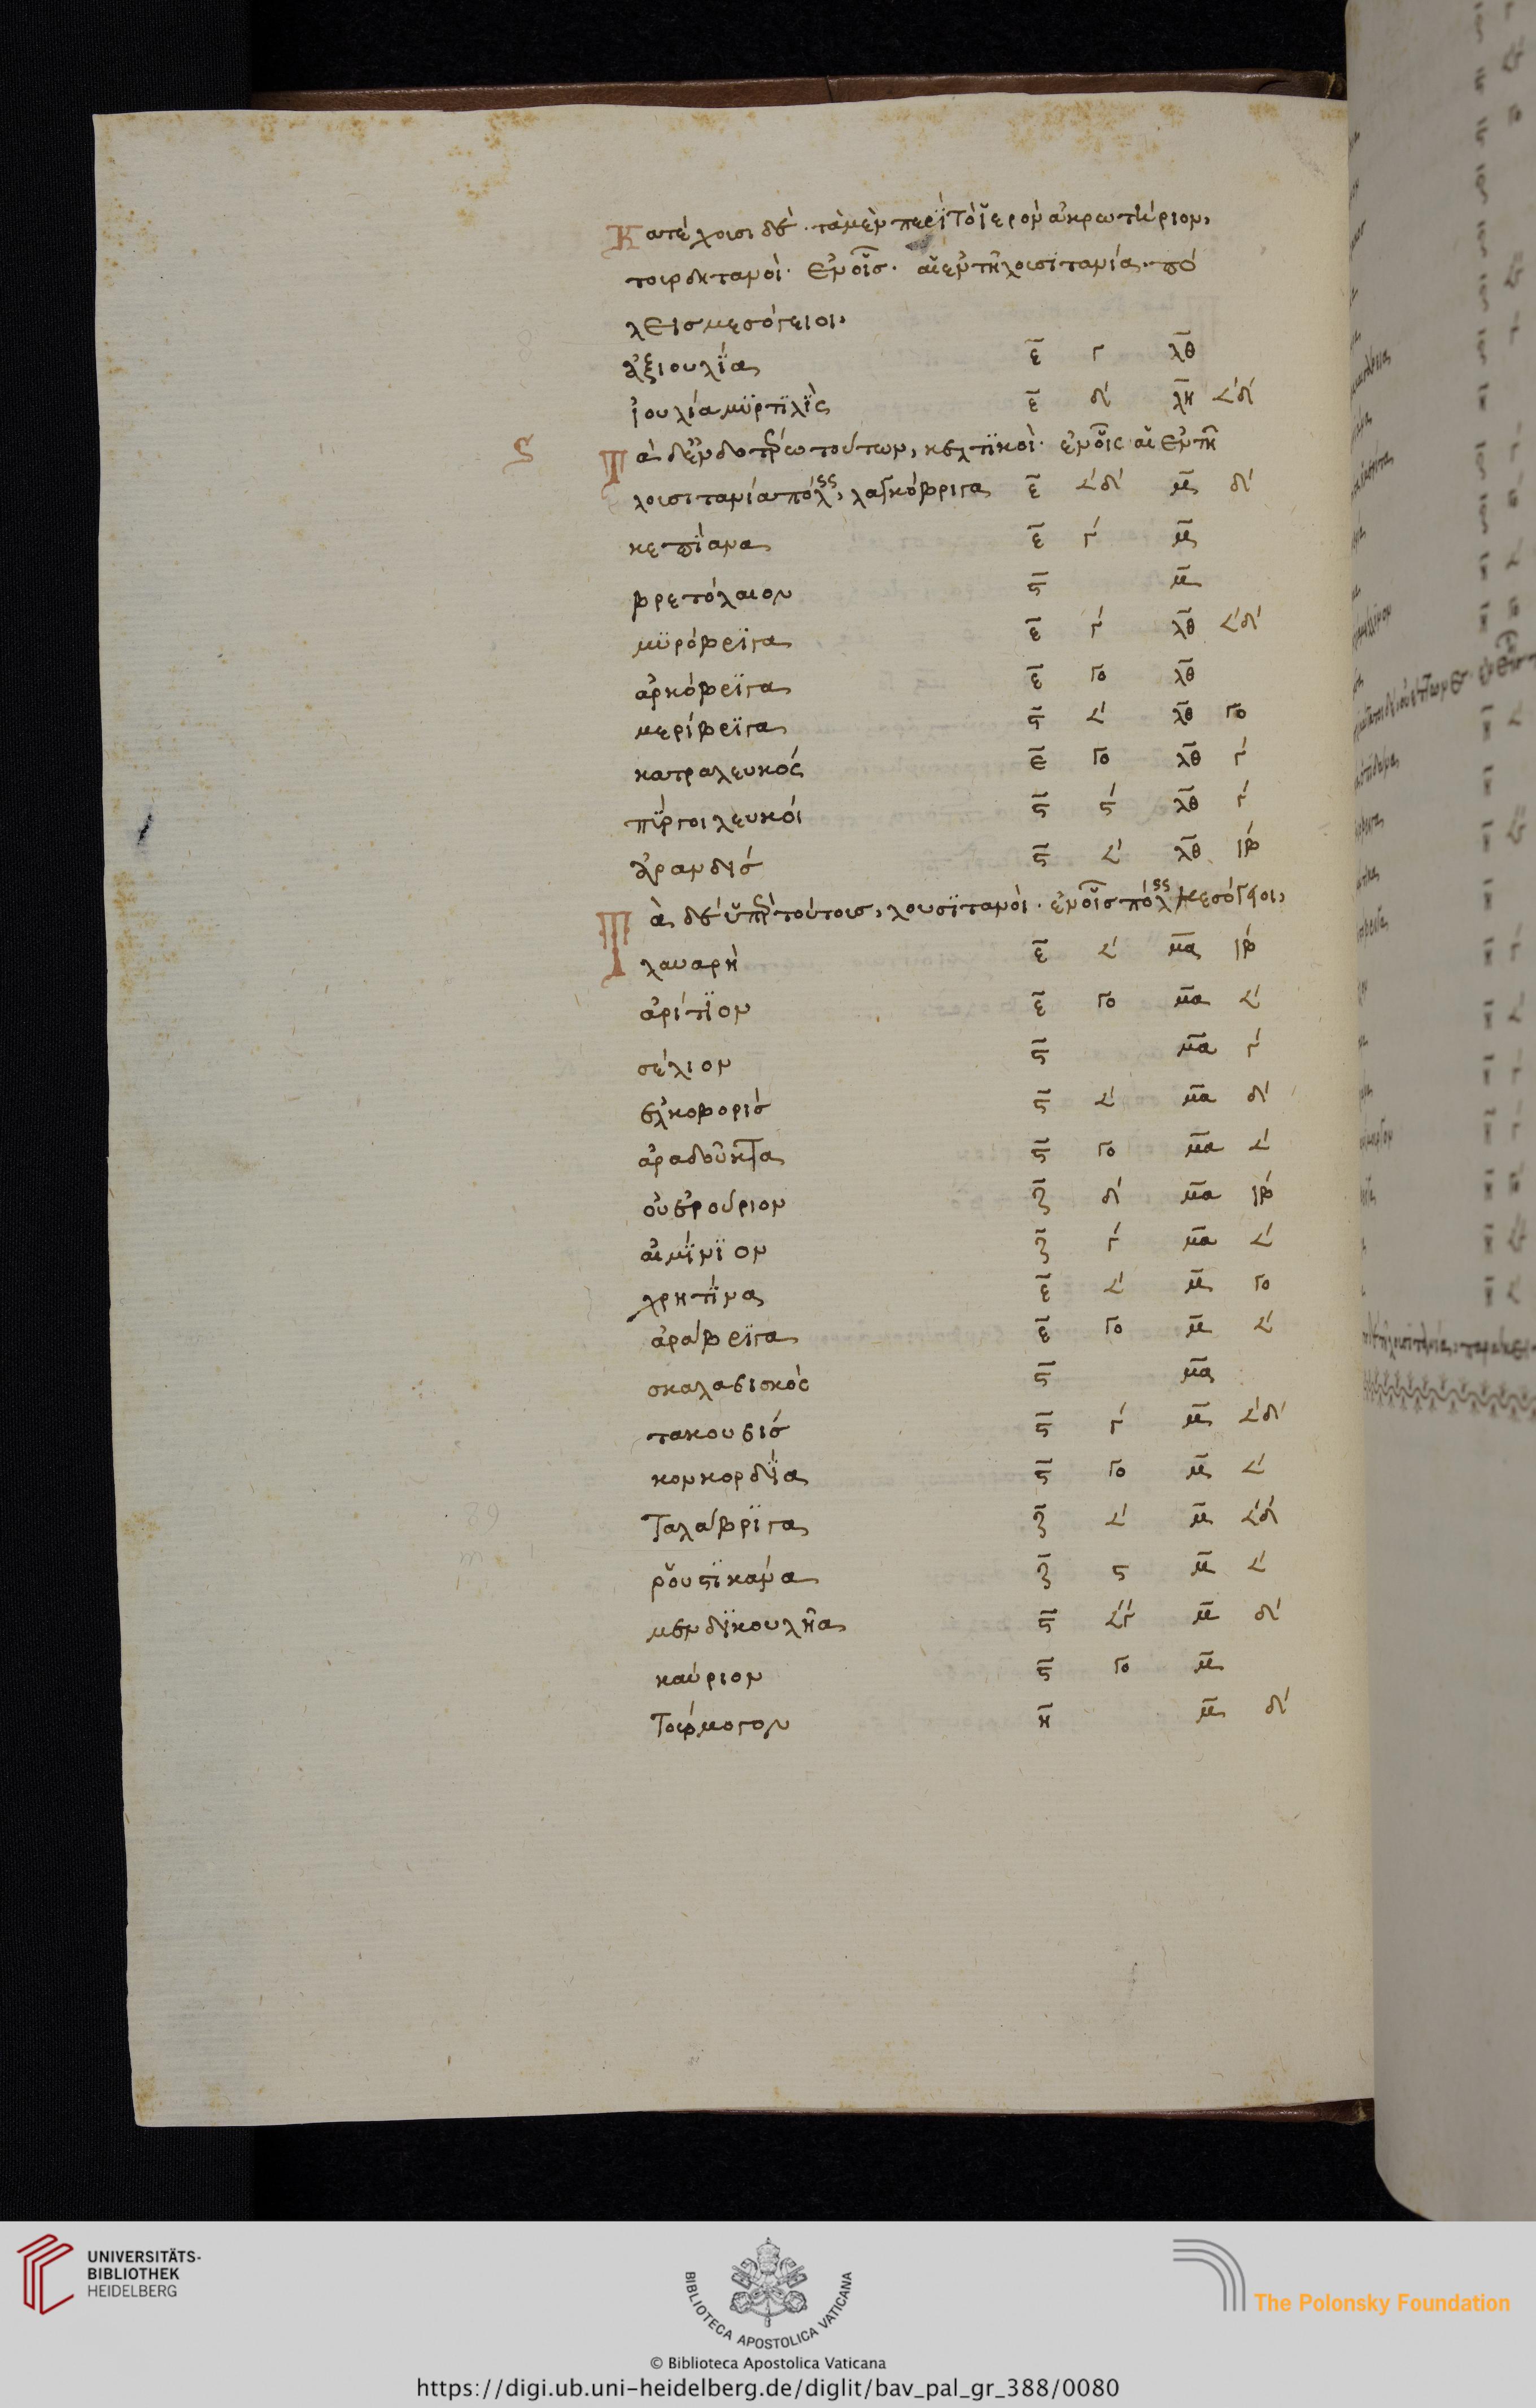 Κατέχουσι δὲ τὰ μὲν περὶ τὸ ἱερὸν ἀκρωτήριον,
τουρδητανοὶ· ἐν οἷς· αἱ ἐν τῆ λουσιτανία· πό
λεις μεσόγειοι,
ἀξιουλία ε̄ γ λ̄θ
ἰουλία μϋρτϊλὶς ε̄ δ' λ̄η ∠'δ'
ϛ Τὰ δ' ἔνδοτέρω τούτων, κελτϊκοὶ· ἐν οἷς αἱ ἐν τῆ
λουσιτανία πόλς, λαγκόβριγα ε̄ ∠'δ' μ̄ δ'
κεπίανα ε̄ γ' μ̄
βρετόλαιον ϛ̄ μ̄
μϋρόβρϊγα ε̄ γ' λ̄θ ∠'δ'
ἀρκόβρϊγα ε̄ γο λ̄θ
μερίβρϊγα ϛ̄ ∠' λ̄θ γο
κατραλευκός ε̄ γο λ̄θ γ'
πΰργοι λευκόι ϛ̄ ϛ' λ̄θ γ'
ἀρανδίσ ϛ̄ ∠' λ̄θ ιβ'
Τὰ δὲ ὑπὲρ τούτοις, λουσϊτανοὶ· ἐν οἷς πόλς μεσόγειοι,
λαυαρὴ ε̄ ∠' μ̄α ιβ'
ἀρίτϊον ε̄ γο μ̄α ∠'
σέλιον ϛ̄ μ̄α γ'
ἐλκοβορισ ϛ̄ ∠' μ̄α δ'
ἀραδοῦκτα ϛ̄ γο μ̄α ∠'
οὐερούριον ζ̄ δ' μ̄α ιβ'
αἰμΐνϊον ζ̄ γ' μ̄α ∠'
χρητΐνα ε̄ ∠' μ̄ γο
ἀράβρϊγα ε̄ γο μ̄ ∠'
σκαλαβισκὸς ϛ̄ μ̄α
τακουβισ ϛ̄ γ' μ̄ ∠'δ'
κονκορδΐα ϛ̄ γο μ̄ ∠'
ταλάβρϊγα ζ̄ ∠' μ̄ ∠'δ'
ῥουτϊκάνα ζ̄ ϛ μ̄ ∠'
μενδϊκουλῆα ϛ̄ ∠'γ' μ̄ δ'
καύριον ϛ̄ γο μ̄
τούρμογον η̄ μ̄ δ'
UNIVERSITÄTS-
BIBLIOTHEK
HEIDELBERG
BIBLIOTECA APOSTOLICA VATICANA
The Polonsky Foundation
© Biblioteca Apostolica Vaticana
https://digi.ub.uni-heidelberg.de/diglit/bav_pal_gr_388/0080